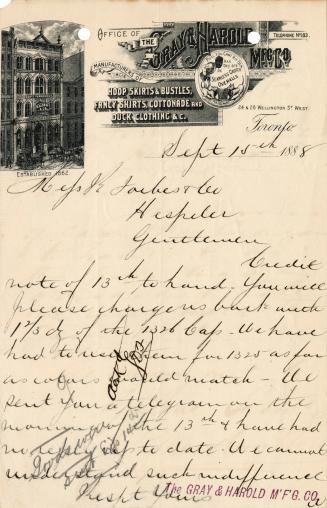 OFFICE OF
THE GRAY & HAROLD MFG CO.
TELEPHONE No 583.
MANUFACTURERS OF
HOOP SKIRTS & BUSTLES,
FANCY SKIRTS, COTTONADE AND
DUCK CLOTHING & C.
24 & 26 WELLINGTON ST WEST.
ESTABLISHED 1862.
Toronto
Sept 15th 1888
Mess R Forbes & Co
Hespeler
Gentlemen
Credit
note of 13th to hand. You will
please charge us back with
of the 1326 Cap. We have
had to use for 1325 as far
as colors would match - We
sent you a telegram on the
morning of the 13th & have had
no reply up to date. We cannot
understand such indifference
Respt Yours
The GRAY & HAROLD M'F'G. CO.